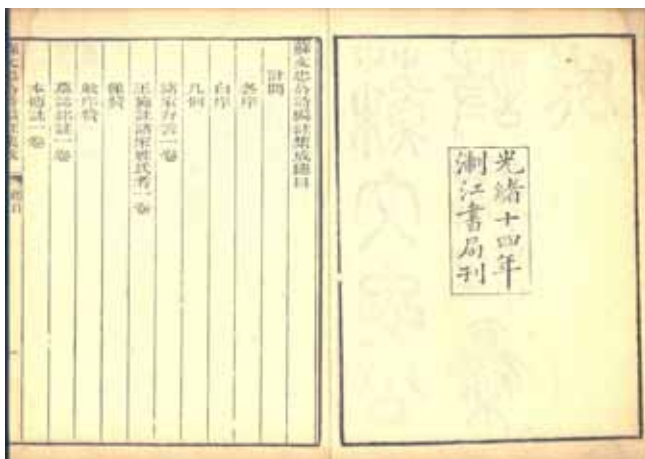 光緒十四年
淛江書局刊
蘇文忠公詩編註集成總目
計開
各序
自序
凡例
諸家弁言一卷
王施註諸家姓氏考一卷
墓誌銘註一卷
本傳註一卷